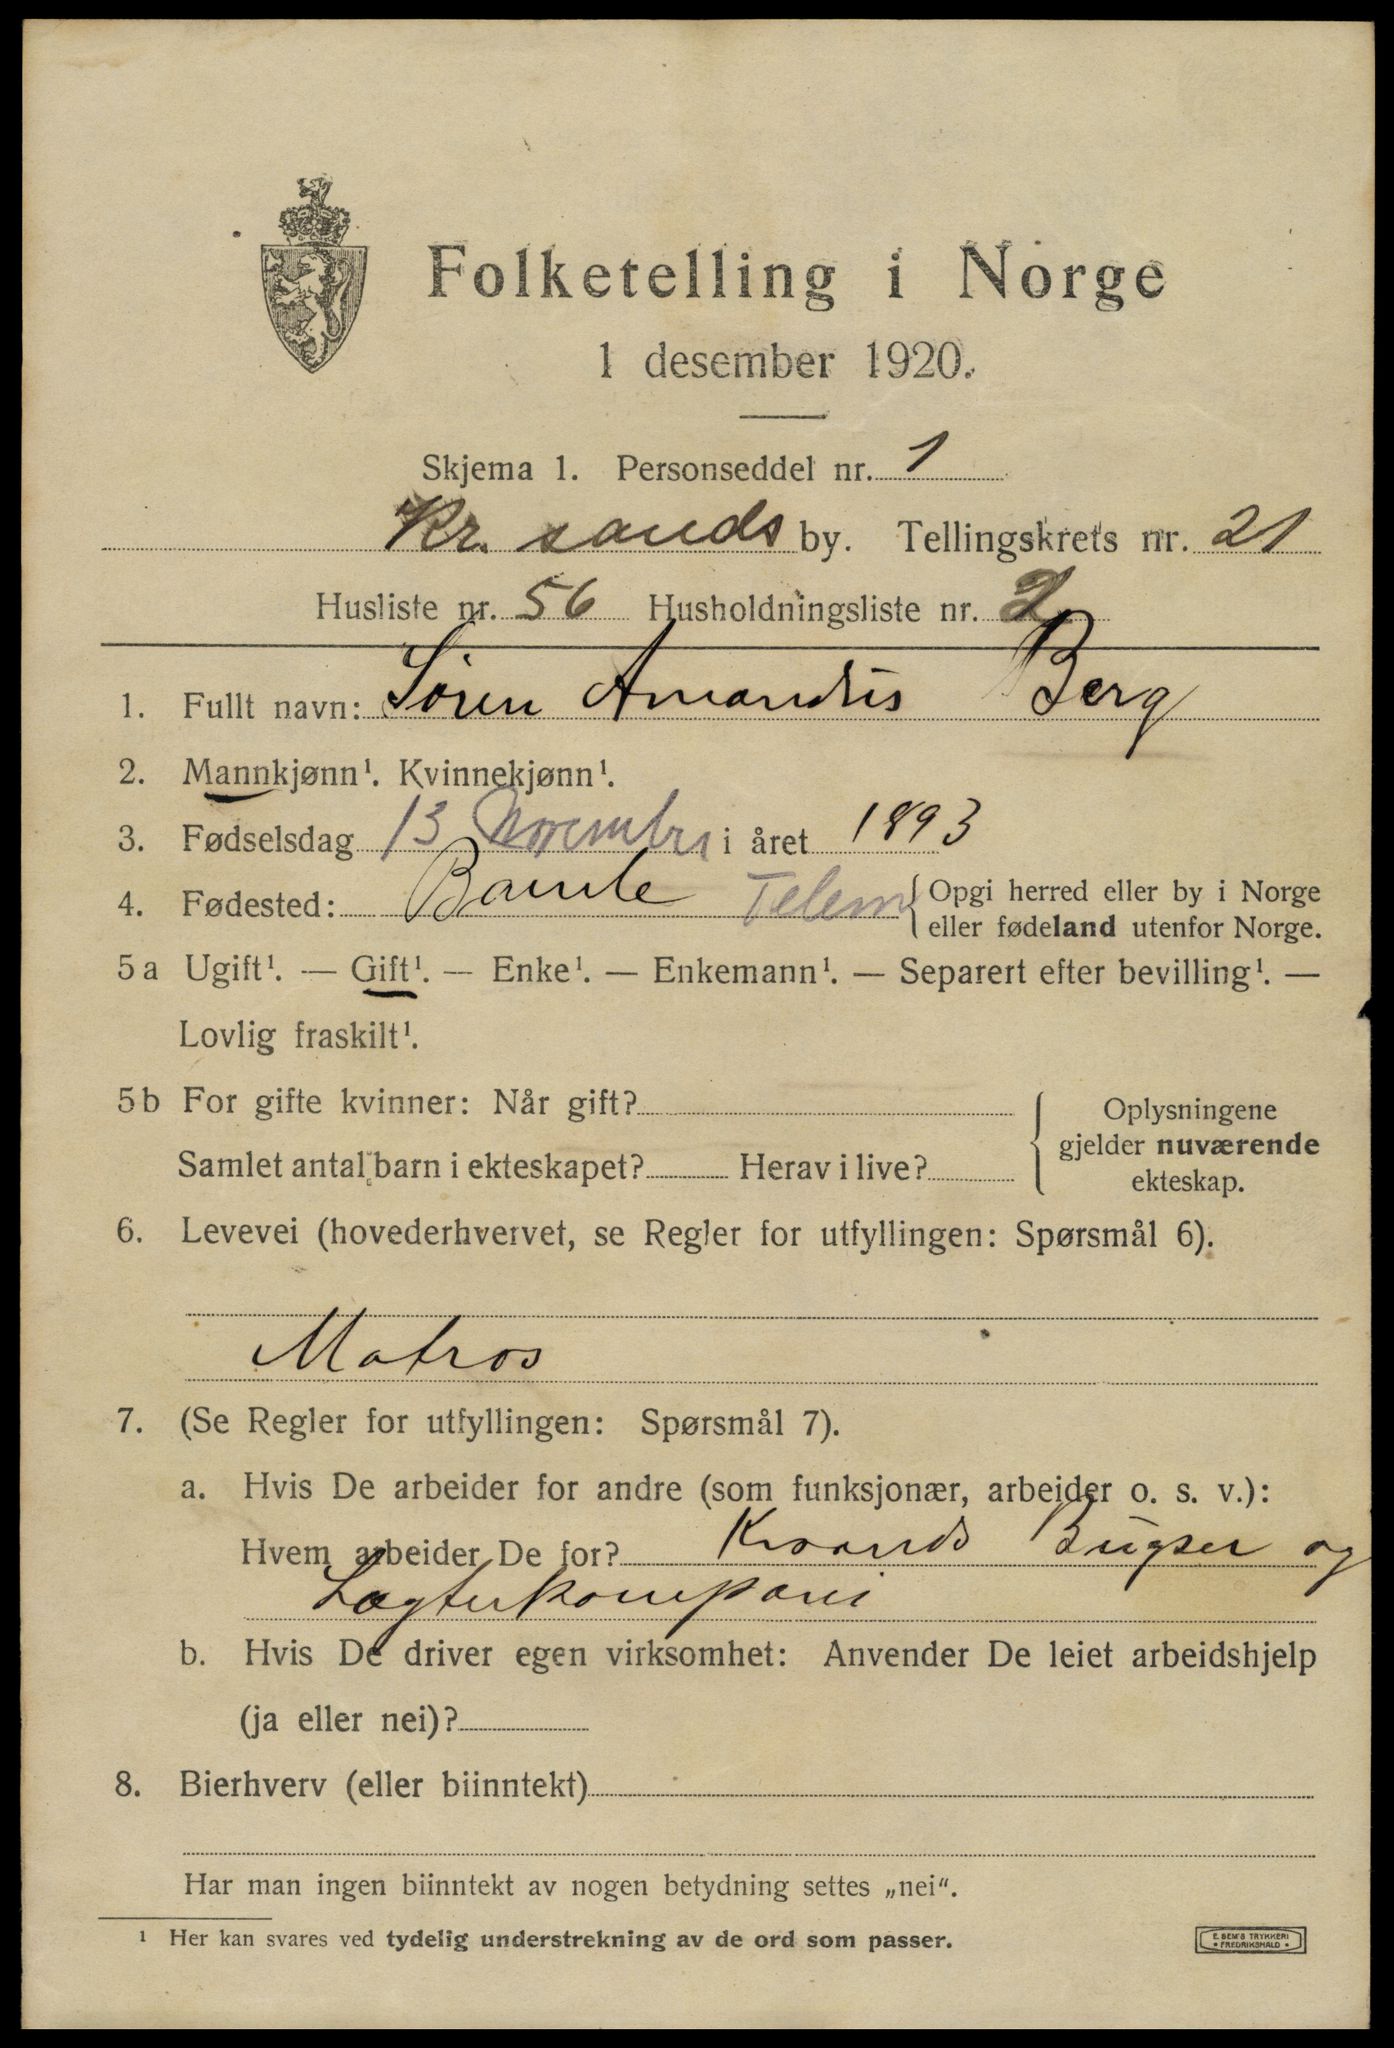 Folketelling i Norge
1 desember 1920.
Skjema 1. Personseddel nr. 1
Kr. sands by. Tellingskrets nr. 21
Husliste nr. 56 Husholdningsliste nr. 2
1. Fullt navn: Søren Amandus Berg
2. Mannkjønn¹. Kvinnekjønn¹.
3. Fødselsdag 13 November i året 1893
4. Fødested: Bamle Telem { Opgi herred eller by i Norge
eller fødeland utenfor Norge.
5a Ugift¹. — Gift¹. — Enke¹. — Enkemann¹. — Separert efter bevilling¹. —
Lovlig fraskilt¹.
5b For gifte kvinner: Når gift?
Samlet antal barn i ekteskapet? Herav i live?
{ Oplysningene
gjelder nuværende
ekteskap.
6. Levevei (hovederhvervet, se Regler for utfyllingen: Spørsmål 6).
Matros
7. (Se Regler for utfyllingen: Spørsmål 7).
a. Hvis De arbeider for andre (som funksjonær, arbeider o. s. v.):
Hvem arbeider De for? Krsands Bugser og
Lægterkompani
b. Hvis De driver egen virksomhet: Anvender De leiet arbeidshjelp
(ja eller nei)?
8. Bierhverv (eller biinntekt)
Har man ingen biinntekt av nogen betydning settes „nei“.
¹ Her kan svares ved tydelig understrekning av de ord som passer.
E. SEM'S TRYKKERI
• FREDRIKSHALD •